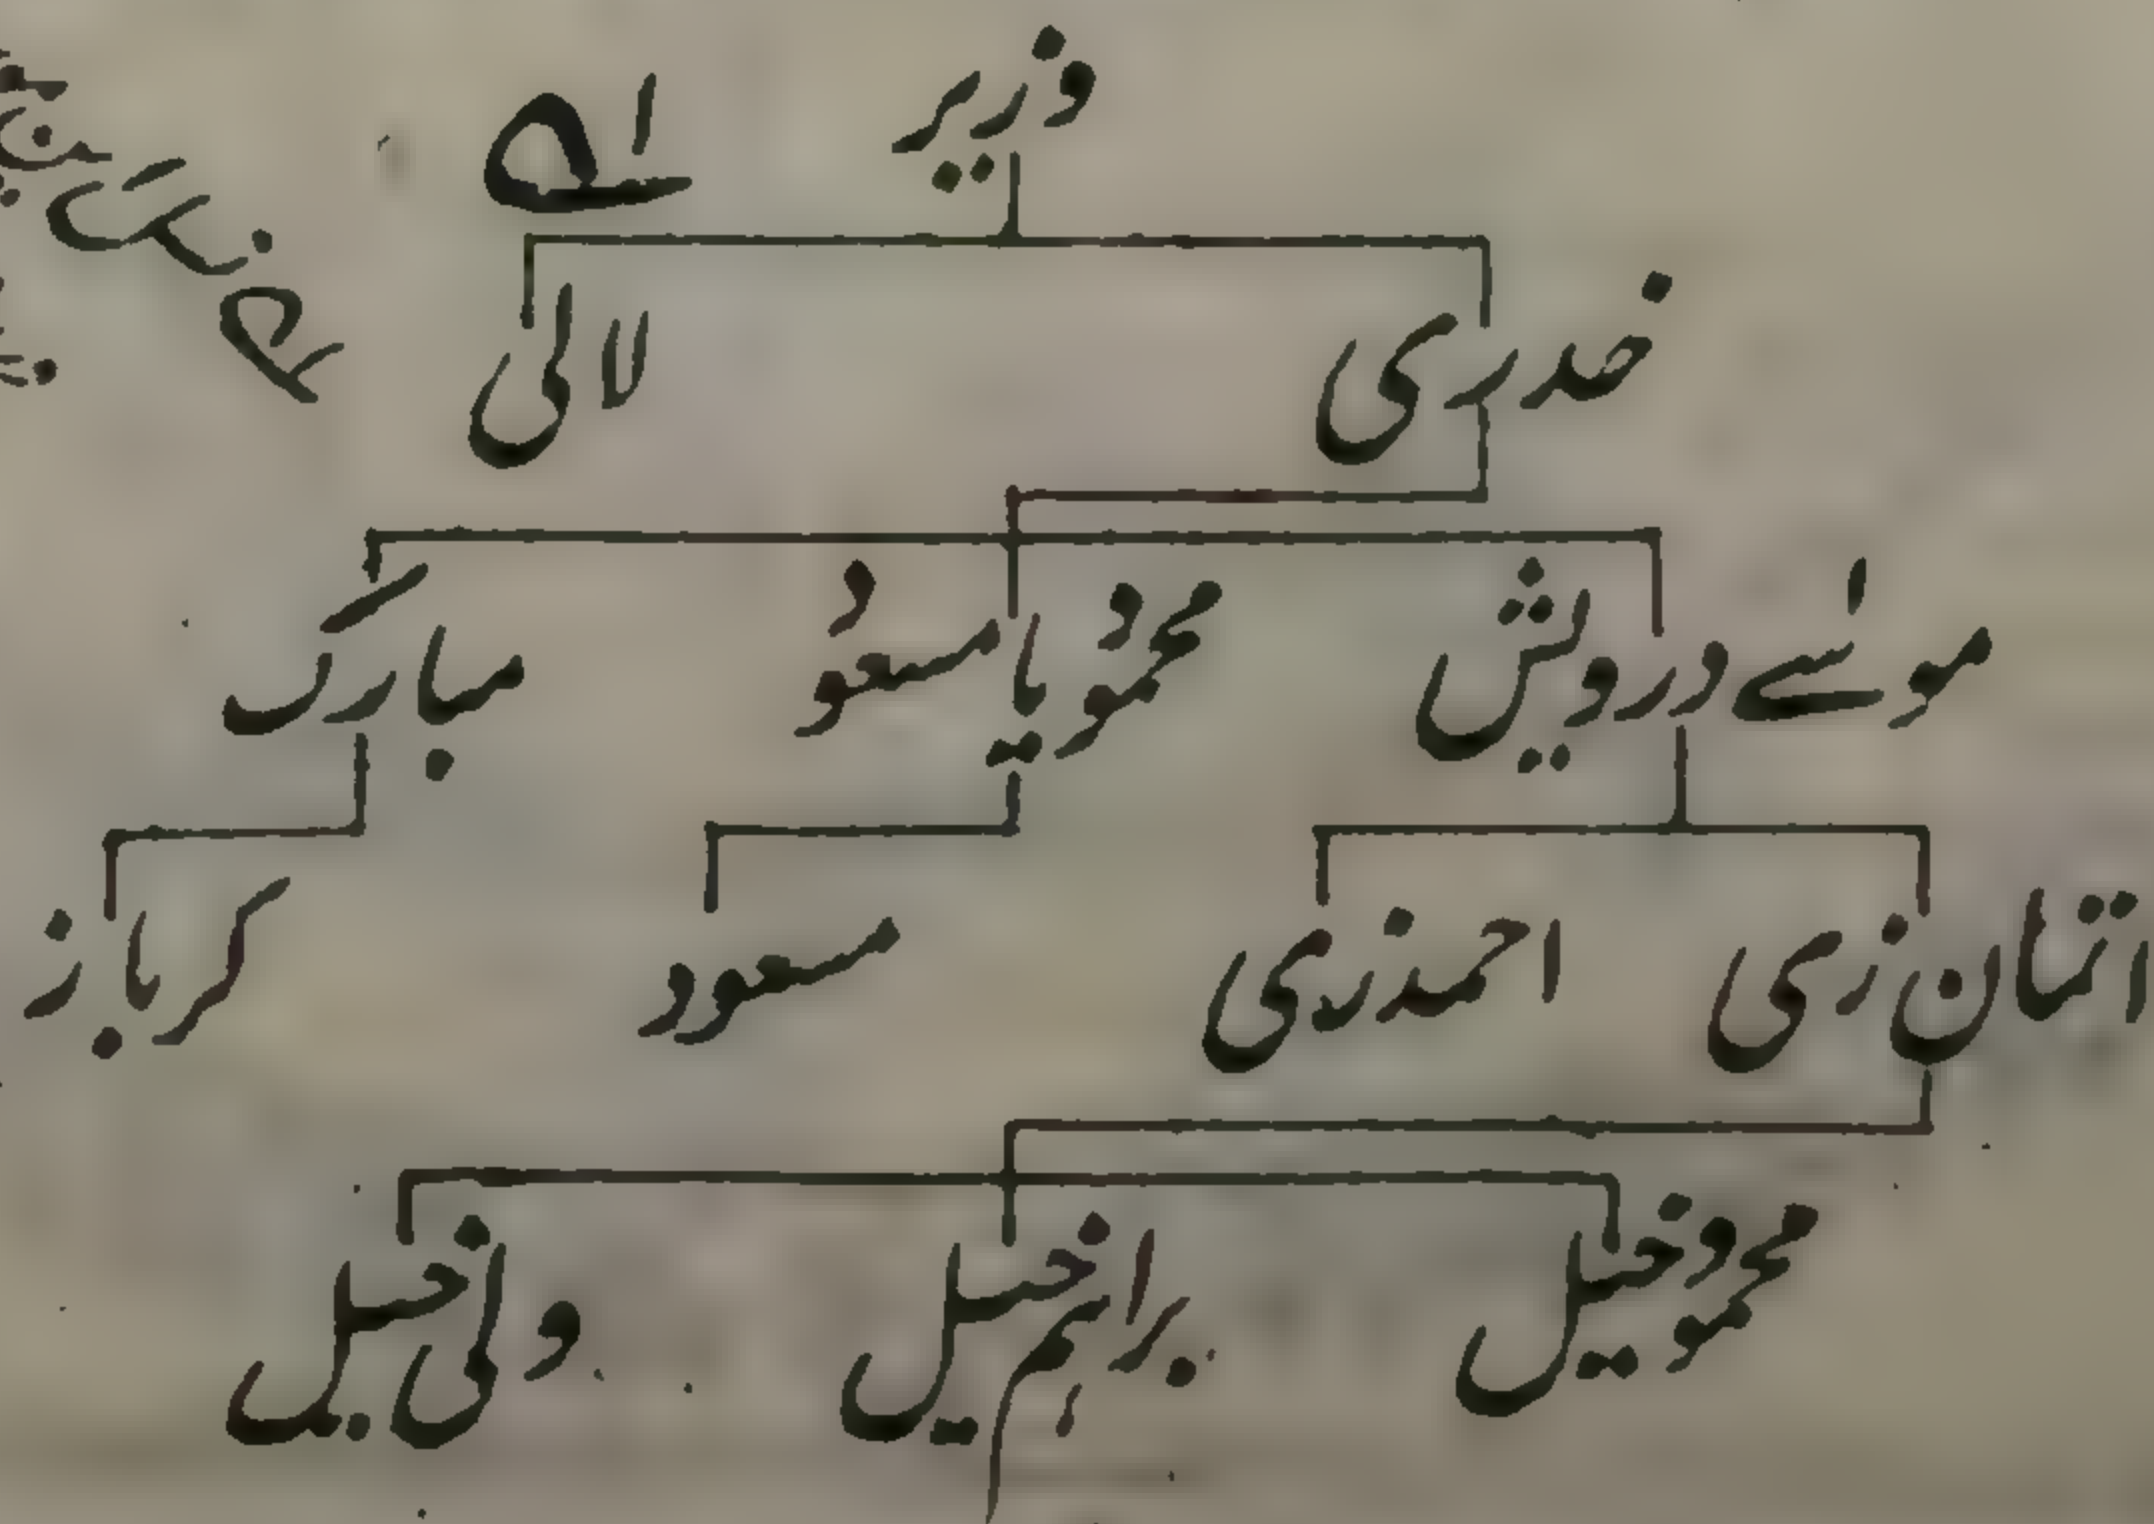 وزیر
خدری لالی
موسٰے درویش محمود یا مسعود مبارک
اتمان زی احمد زی مسعود کرباز
محمود خیل براہم خیل ولی خیل